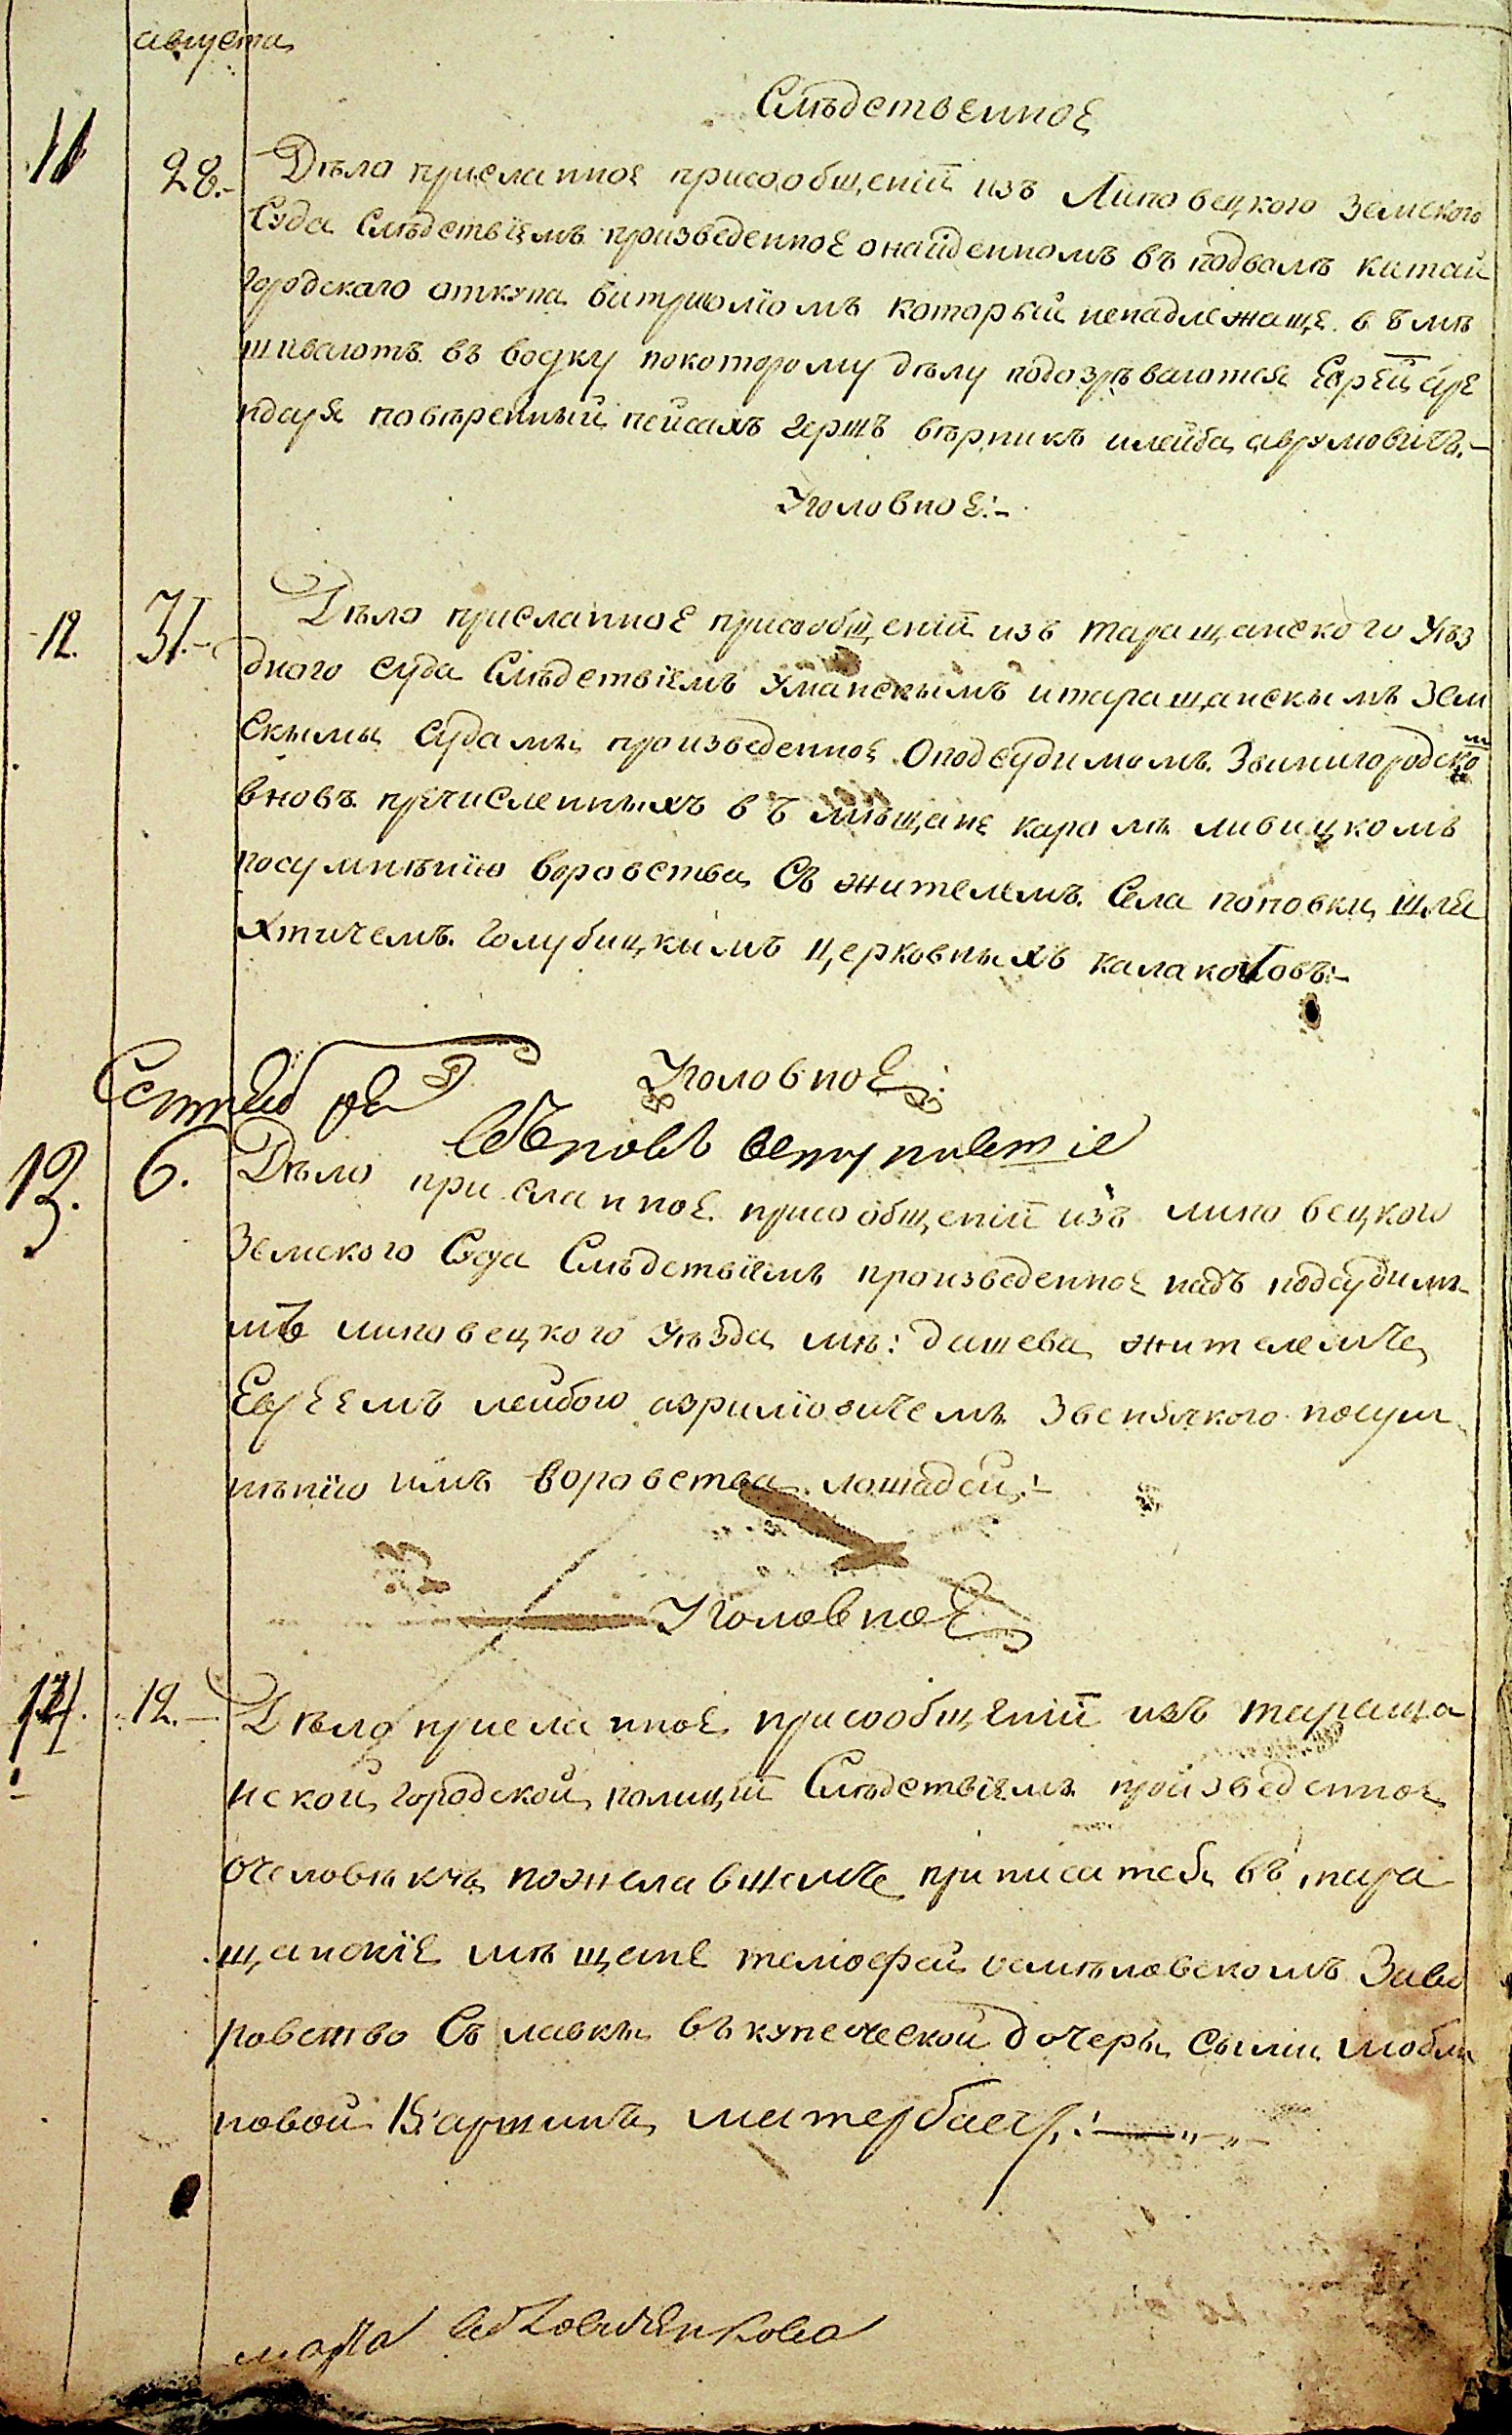 августа
Слѣдственное
11 28.- Дѣло присланное присообщенїи изъ Липовецкого Земского
Суда Слѣдствїемъ произведенное онайденномъ въ подвалѣ китай
городскаго откупа витриолїомъ который ненадлежаще въ ѣмѣ
шиваютъ въ водку покоторому дѣлу подозрѣваются Еврей аре
ндаря повѣренный пейсахъ гершъ вѣрникъ илейба аврумовичъ.-
Уголовное:-
12. 31.- Дѣло присланное присообщенїи изъ таращанского Уѣз
дного суда Слѣдствїемъ Уманскимъ итаращанскымъ Зем
скимы Судамы произведенное Оподсудимомъ Звинигородско
вновъ пречисленныхъ въ мѣщане каролѣ ливицкомъ
посумнѣнїю воровства Съ жителемъ Села поповки шля
хтичемъ голубицкимъ церковныхъ калаколовъ:-
Сентебре
Уголовное:
13. 6. Дѣло присланное присообщенїи изъ липовецкого
Земского Суда Слѣдствїемъ произведенное надъ подсудимы
мъ липовецкого Уѣзда мѣ: дашева жителемъ
Евреемъ лейбою аврумовичемъ посум
нѣнїю имъ воровства лошадей:-
Уголовное
14. 12.- Дѣло присланное присообщенїи изъ тараща
нской городской полицїи Слѣдствїемъ произведенное
очеловѣкъ пожелавшемъ приписатебя въ тара
щанскїе мѣщане темофей Заво
ровство Съ лавкы въ купеческой дочеры
новой